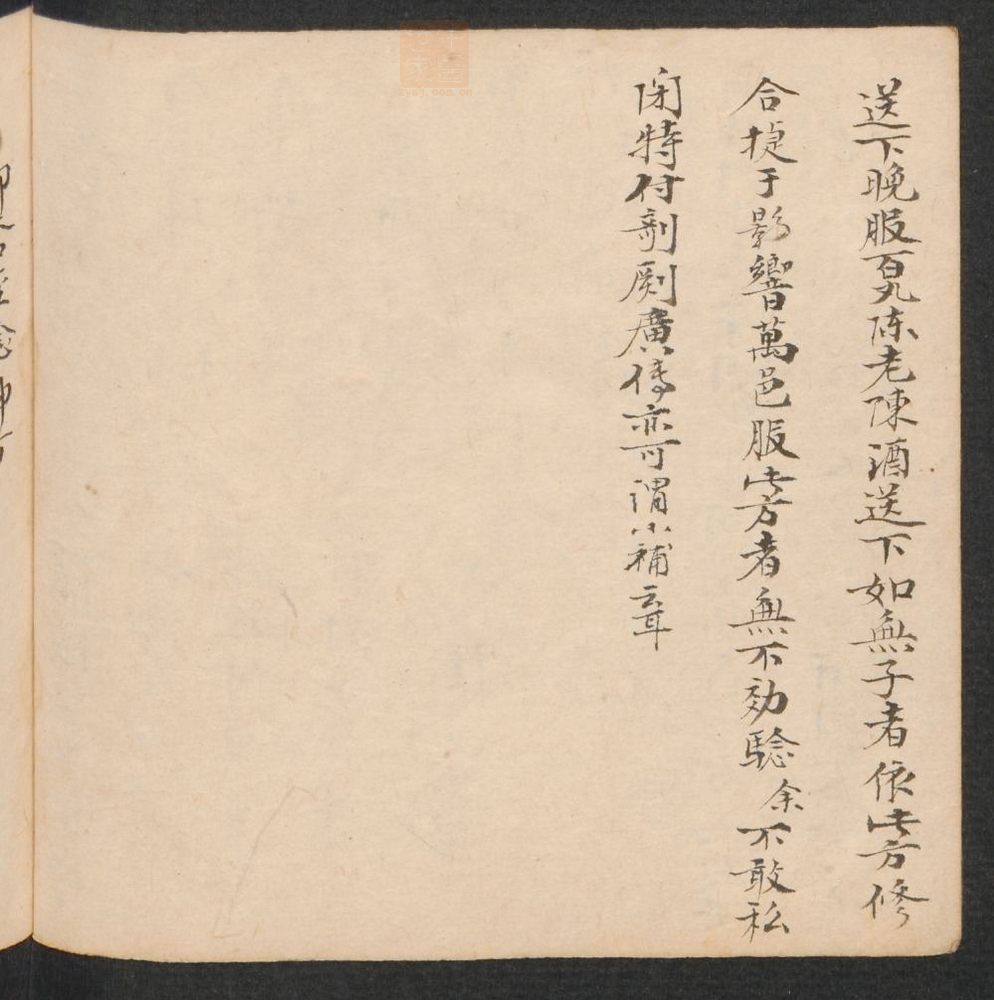 送下晚服百丸陈老陳酒送下如無子者依此方修
合捷于影響萬邑服此方者無不効騐余不敢私
閉特付剞劂廣傳亦可謂小補云耳